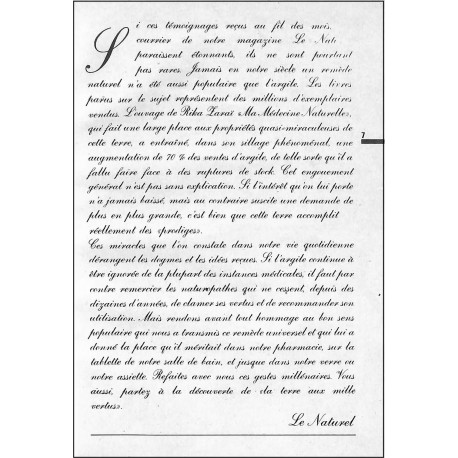 Si ces témoignages reçus au fil des mois,
courrier de notre magazine Le Natu
paraissent étonnants, ils ne sont pourtant
pas rares. Jamais en notre siècle un remède
naturel n'a été aussi populaire que l'argile. Les livres
parus sur le sujet représentent des millions d'exemplaires
vendus. L'ouvrage de Rika Zaraï «Ma Médecine Naturelle»,
qui fait une large place aux propriétés quasi-miraculeuses de
cette terre, a entraîné, dans son sillage phénoménal, une
augmentation de 70 % des ventes d'argile, de telle sorte qu'il a
fallu faire face à des ruptures de stock. Cet engouement
général n'est pas sans explication. Si l'intérêt qu'on lui porte
n'a jamais baissé, mais au contraire suscite une demande de
plus en plus grande, c'est bien que cette terre accomplit
réellement des «prodiges».
Ces miracles que l'on constate dans notre vie quotidienne
dérangent les dogmes et les idées reçues. Si l'argile continue à
être ignorée de la plupart des instances médicales, il faut par
contre remercier les naturopathes qui ne cessent, depuis des
dizaines d'années, de clamer ses vertus et de recommander son
utilisation. Mais rendons avant tout hommage au bon sens
populaire qui nous a transmis ce remède universel et qui lui a
donné la place qu'il méritait dans notre pharmacie, sur la
tablette de notre salle de bain, et jusque dans notre verre ou
notre assiette. Refaites avec nous ces gestes millénaires. Vous
aussi, partez à la découverte de «la terre aux mille
vertus».
Le Naturel
7